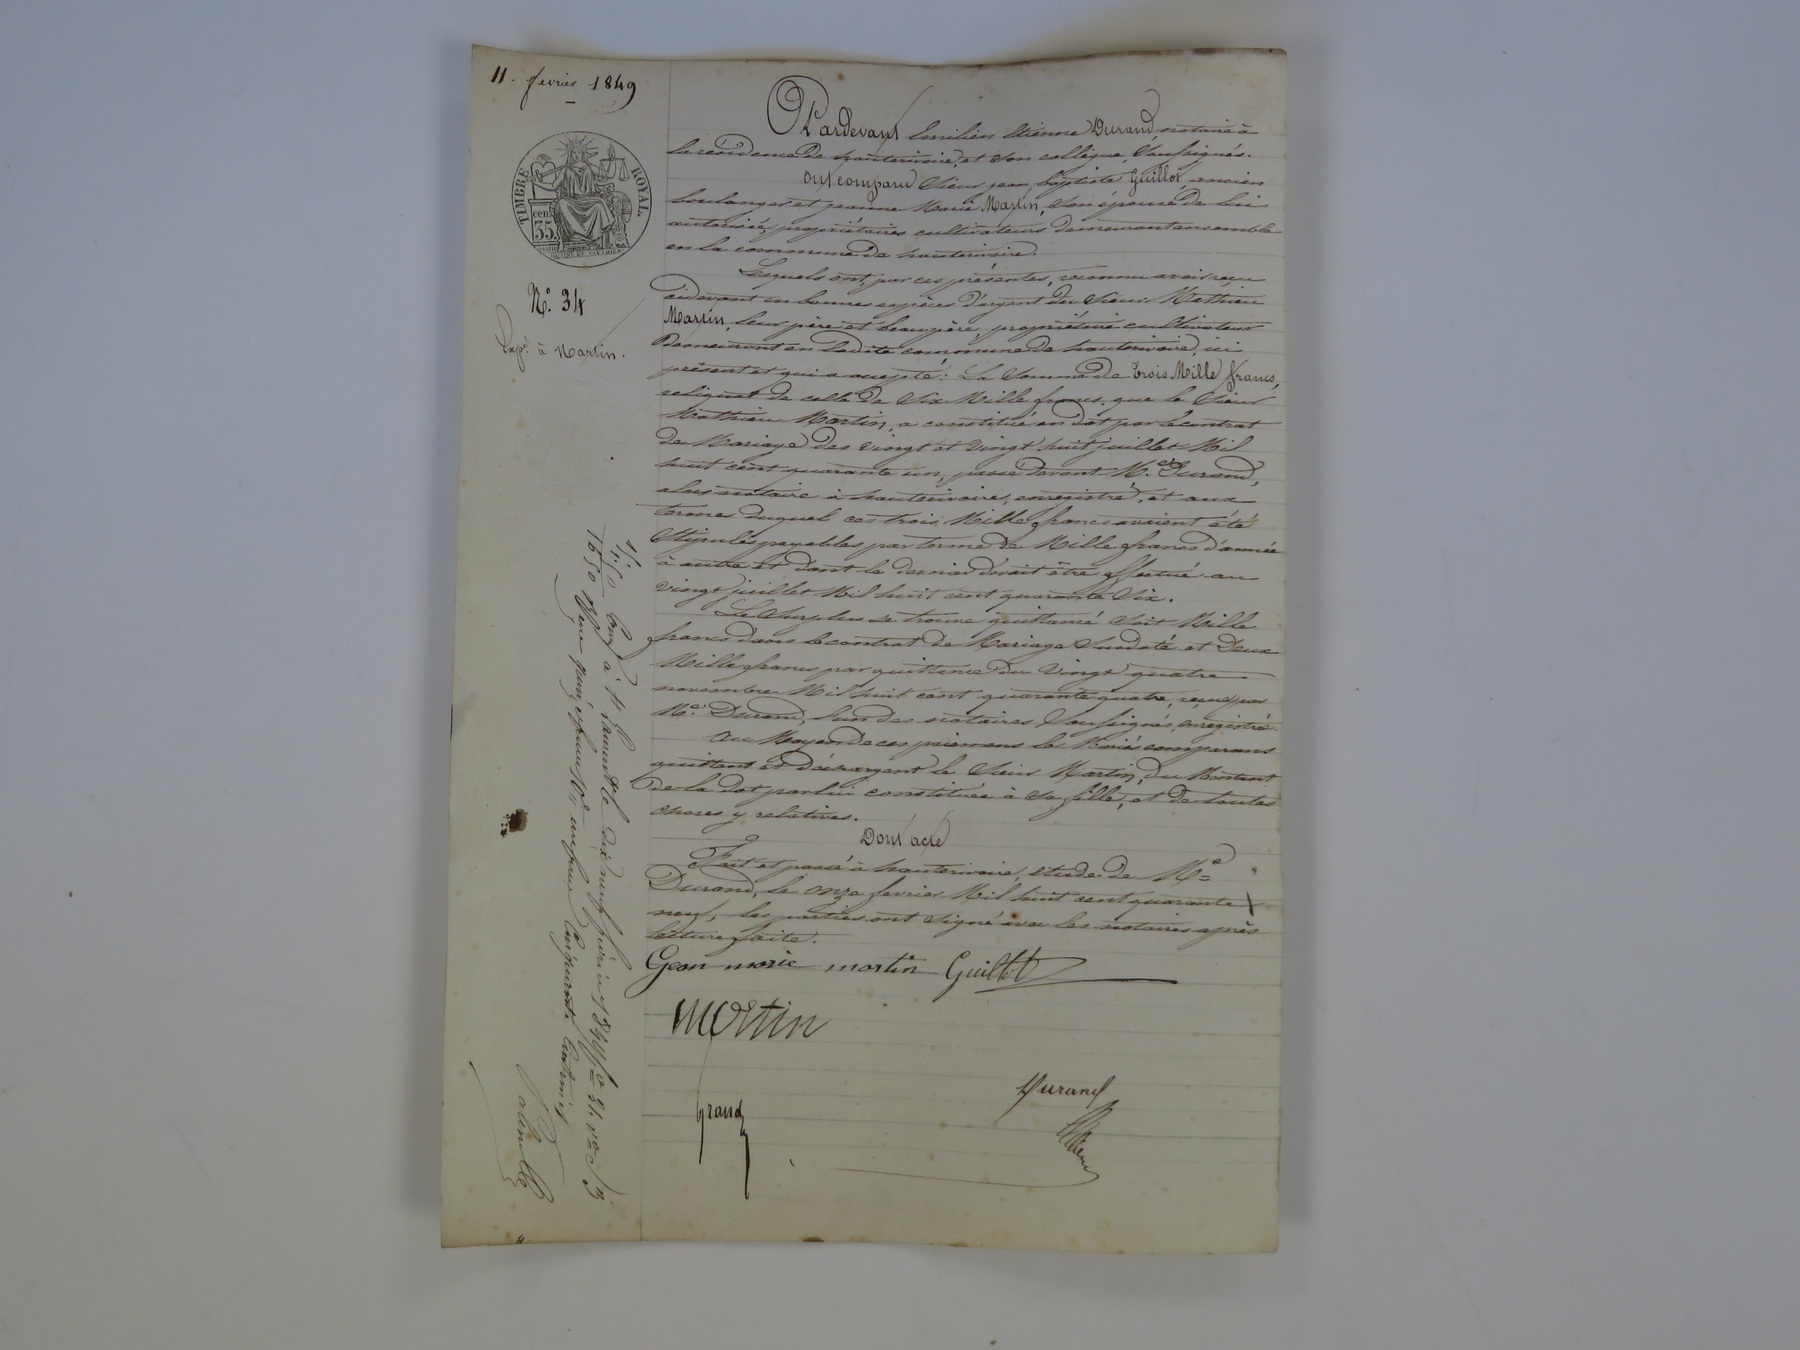 11. fevrier 1849
TIMBRE ROYAL.
cent
35.
N.o 34
Exp.é à Martin.
Pardevant Emilien Etienne Durand notaire à
la résidence de hauterivoire, et son collègue, soussignés.
ont comparu Sieur jean baptiste Guillot ancien
boulanger et jeanne Marie Martin, son épouse de lui
autorisée, propriétaires cultivateurs demeurant ensemble
en la commune de hauterivoire.
Lesquels ont, par ces présentes, reconnu avoir reçu
cidevant en bonnes espèces d'argent du Sieur Mathieu
Martin, leur père et beaupère, propriétaire cultivateur
demeurant en ladite commune de hauterivoire, ici
présent et qui a accepté: La Somme de trois Mille francs,
reliquat de celle de Six Mille francs, que le Sieur
Mathieu Martin, a constitué en dot par le contrat
de Mariage des vingt et vingt huit juillet Mil
huit cent quarante un, passé devant M.e Durand,
alors notaire à hauterivoire, enregistré, et aux
termes duquel ces trois Mille francs avaient été
Stipulés payables par terme de Mille francs d'année
à autre et dont le dernier devait être effectué au
vingt juillet Mil huit cent quarante Six.
Le Surplus se trouve quittancé Soit Mille
francs dans le contrat de Mariage Susdaté et Deux
Mille francs par quittance du Vingt quatre
novembre Mil huit cent quarante quatre, reçue par
M.e Durand, l'un des notaires Soussignés, enregistré.
Au Moyen de ces paiemens les Mariés comparans
quittent et déchargent le Sieur Martin, du Montant
de la dot par lui constituée à Sa fille, et de toutes
choses y relatives.
Dont acte
Fait et passé à hauterivoire, étude de M.e
Durand, le onze fevrier Mil huit cent quarante
neuf, les parties ont Signé avec les notaires après
lecture faite.
Gean marie martin Guillot
martin
Durand
grand
1650
à St Laurent le dix neuf février 1849 f.o 51. v.o c/3
quinze francs cinquante centimes